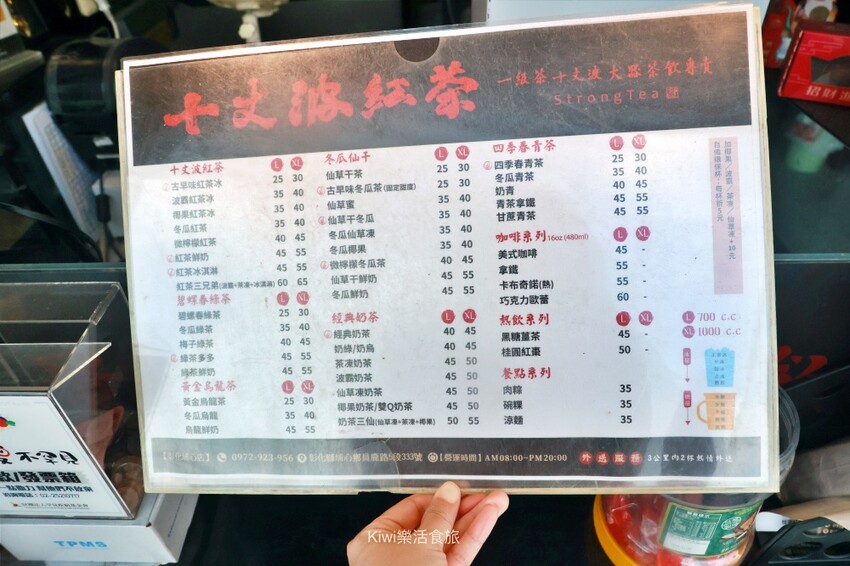 十丈波紅茶
一級茶十丈波大眾茶飲專賣
StrongTea
十丈波紅茶 L XL
古早味紅茶冰 25 30
波霸紅茶冰 35 40
椰果紅茶冰 35 40
冬瓜紅茶 35 40
微檸檬紅茶 40 45
紅茶鮮奶 45 55
紅茶冰淇淋 45 55
紅茶三兄弟(波霸+茶凍+冰淇淋) 60 65
碧螺春綠茶 L XL
碧螺春綠茶 25 30
冬瓜綠茶 35 40
梅子綠茶 40 45
綠茶多多 45 55
綠茶鮮奶 45 55
黃金烏龍茶 L XL
黃金烏龍茶 25 30
冬瓜烏龍 35 40
烏龍鮮奶 45 55
冬瓜仙干 L XL
仙草干茶 25 30
古早味冬瓜茶(固定甜度) 25 30
仙草蜜 35 40
仙草干冬瓜 35 40
冬瓜仙草凍 35 40
冬瓜椰果 35 40
微檸檬冬瓜茶 40 45
仙草干鮮奶 45 55
冬瓜鮮奶 45 55
經典奶茶 L XL
經典奶茶 40 45
奶綠/奶烏 40 45
茶凍奶茶 45 50
波霸奶茶 45 50
仙草凍奶茶 45 50
椰果奶茶/雙Q奶茶 45 50
奶茶三仙(仙草凍+茶凍+椰果) 50 55
四季春青茶 L XL
四季春青茶 25 30
冬瓜青茶 35 40
奶青 40 45
青茶拿鐵 45 55
甘蔗青茶 45 55
咖啡系列16oz (480ml) L XL
美式咖啡 45 -
拿鐵 55 -
卡布奇諾(熱) 55 -
巧克力歐蕾 60 -
熱飲系列 L XL
黑糖薑茶 45 -
桂圓紅棗 50 -
餐點系列
肉粽 35
碗粿 35
涼麵 35
加椰果／波霸／茶凍／仙草凍+10元
自備環保杯：每杯折5元
L 700 c.c
XL 1000 c.c
0972-923-956
【營運時間】AM08:00~PM20:00
外送服務 3公里內2杯熱情外送
招財
TPMS
Kiwi樂活食旅